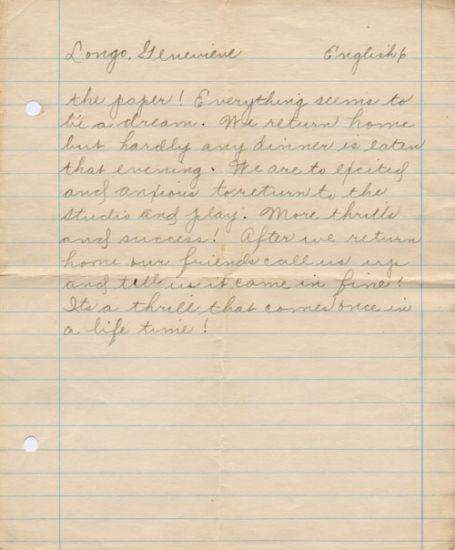 Longo, Genevieve English 6
the paper! Everything seems to
be a dream. We return home
but hardly any dinner is eaten
that evening. We are to excited
and anxious to return to the
studio and play. More thrills
and success! After we return
home our friends call us up
and tell us it came in fine!
Its a thrill that comes once in
a life time!